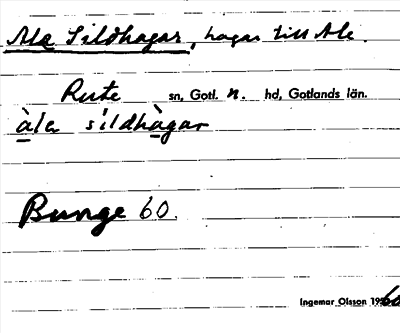 Ala Sildhagar, hagar till Ale.
Rute sn, Gotl. n. hd, Gotlands län.
àla sildhàgar
Bunge 60.
Ingemar Olsson 1960